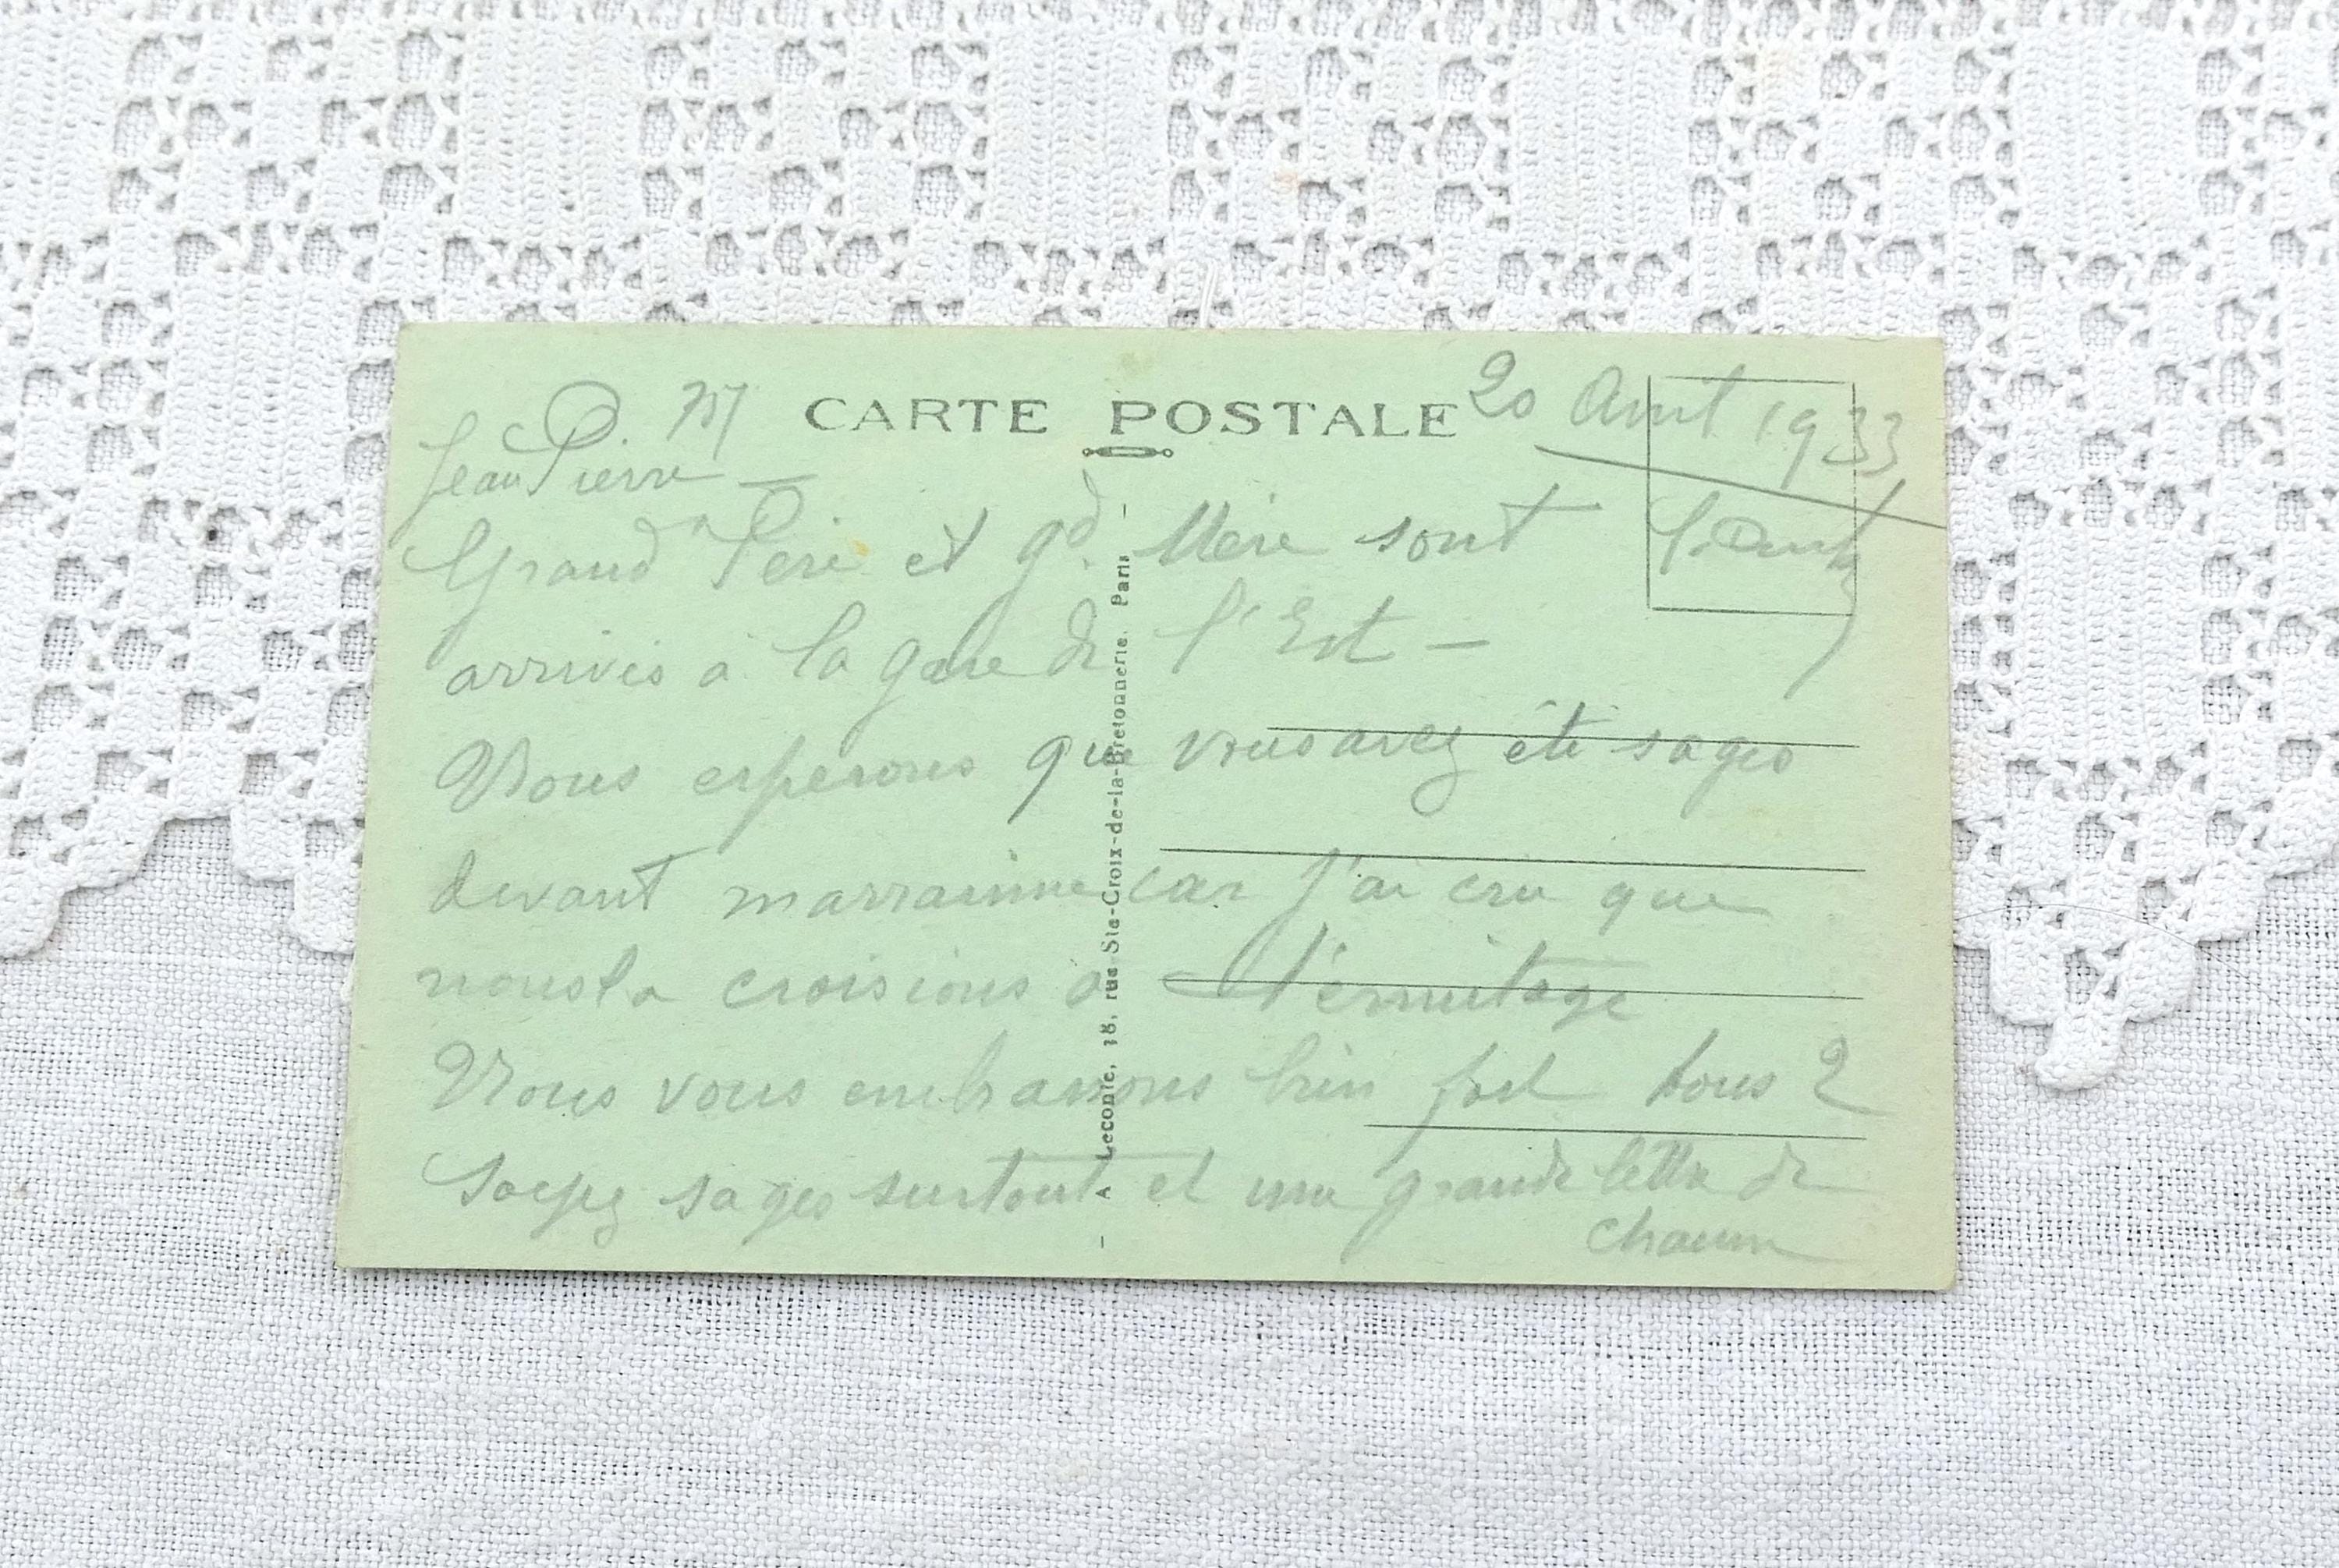 P. M CARTE POSTALE 20 Avril 1933
Jean Pierre —
Grand Père et gd. Mère sont
arrivés à la gare de l'Est —
Nous esperons que vous avez été sages
devant marrainne car j'ai cru que
nous la croisions a l'ermitage
Nous vous embrassons bien fort tous 2
Soyez sages surtout et une grande lettre de
chacun
A Leconte, 38, rue Ste-Croix-de-la-Bretonnerie, Paris